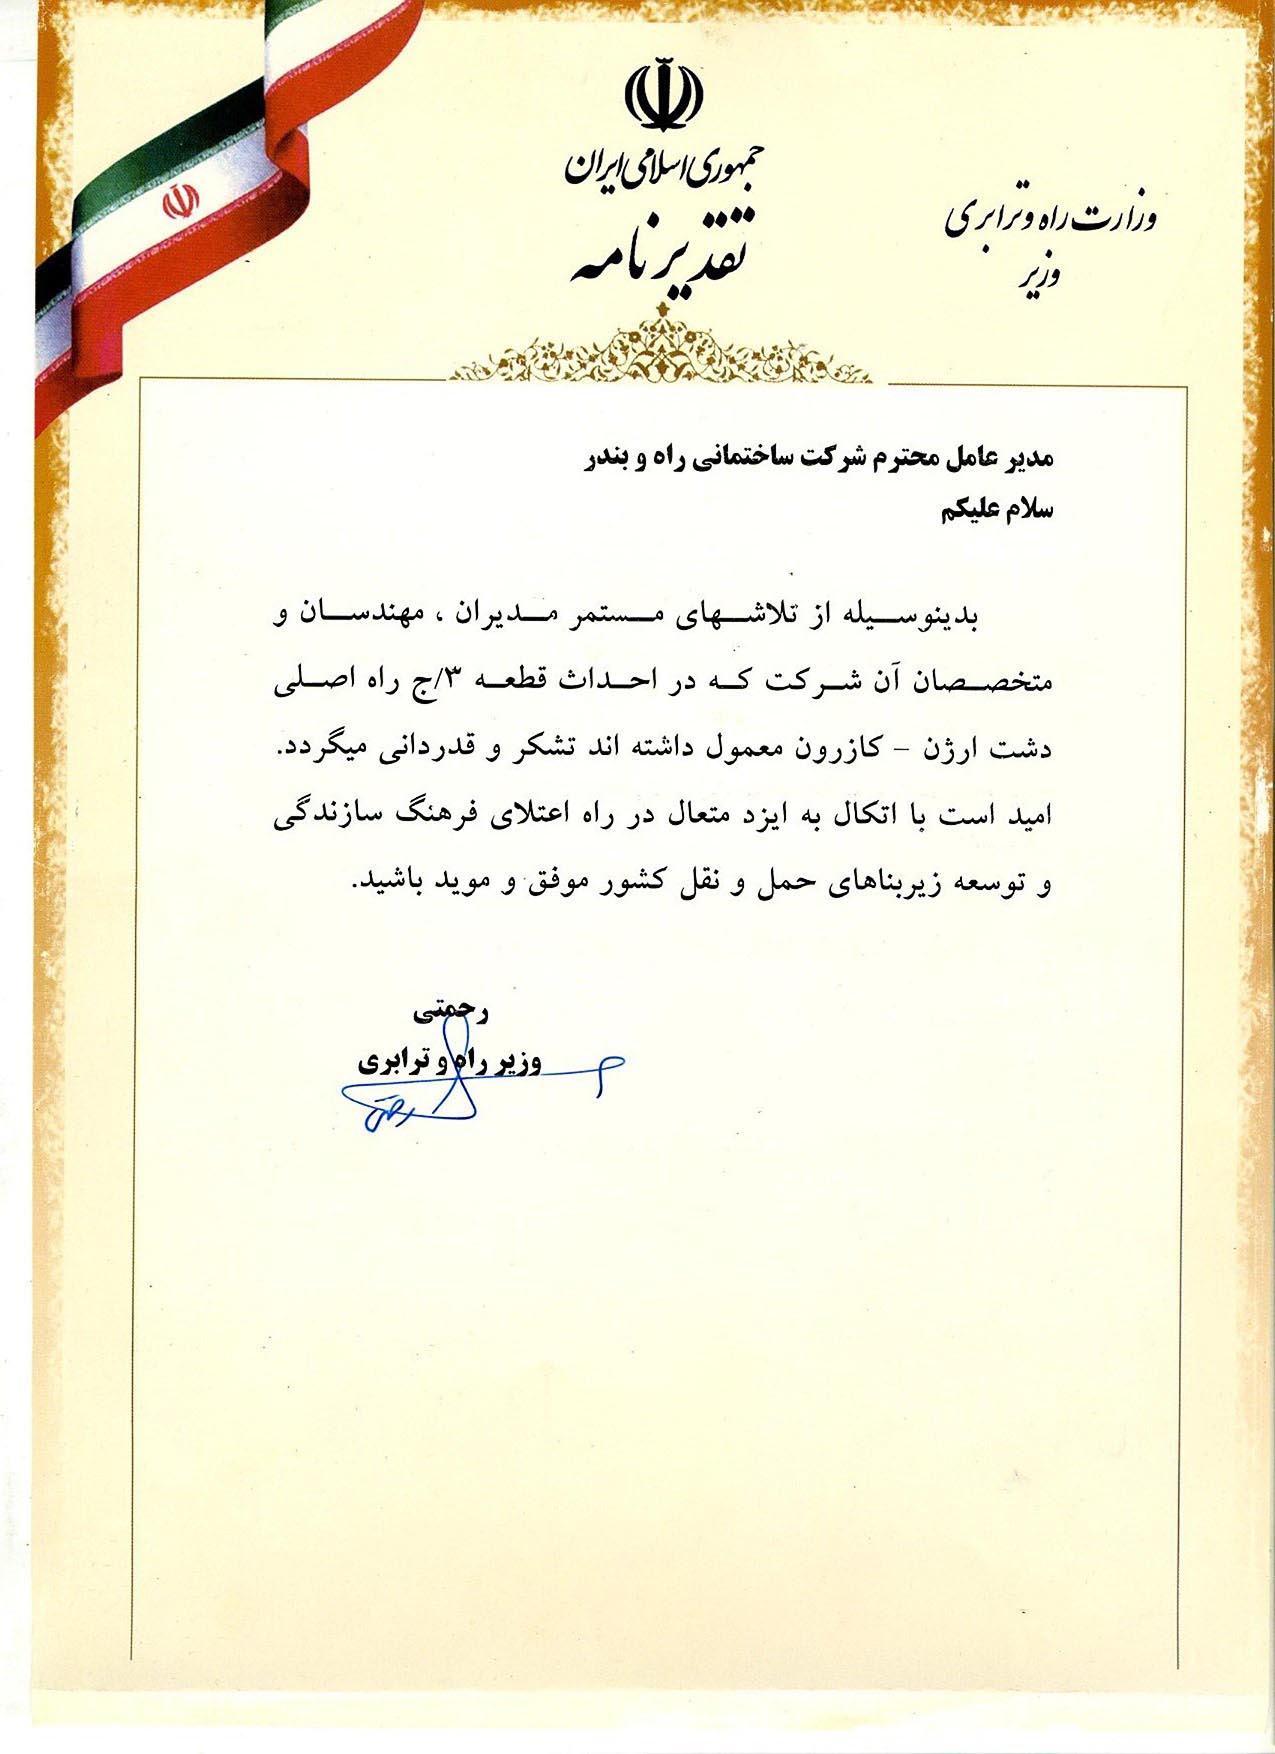 جمهوری اسلامی ایران
تقدیرنامه
وزارت راه و ترابری
وزیر
مدیر عامل محترم شرکت ساختمانی راه و بندر
سلام علیکم
بدینوسیله از تلاشهای مستمر مدیران ، مهندسان و
متخصصان آن شرکت که در احداث قطعه ۳/ج راه اصلی
دشت ارژن – کازرون معمول داشته اند تشکر و قدردانی میگردد.
امید است با اتکال به ایزد متعال در راه اعتلای فرهنگ سازندگی
و توسعه زیربناهای حمل و نقل کشور موفق و موید باشید.
رحمتی
وزیر راه و ترابری